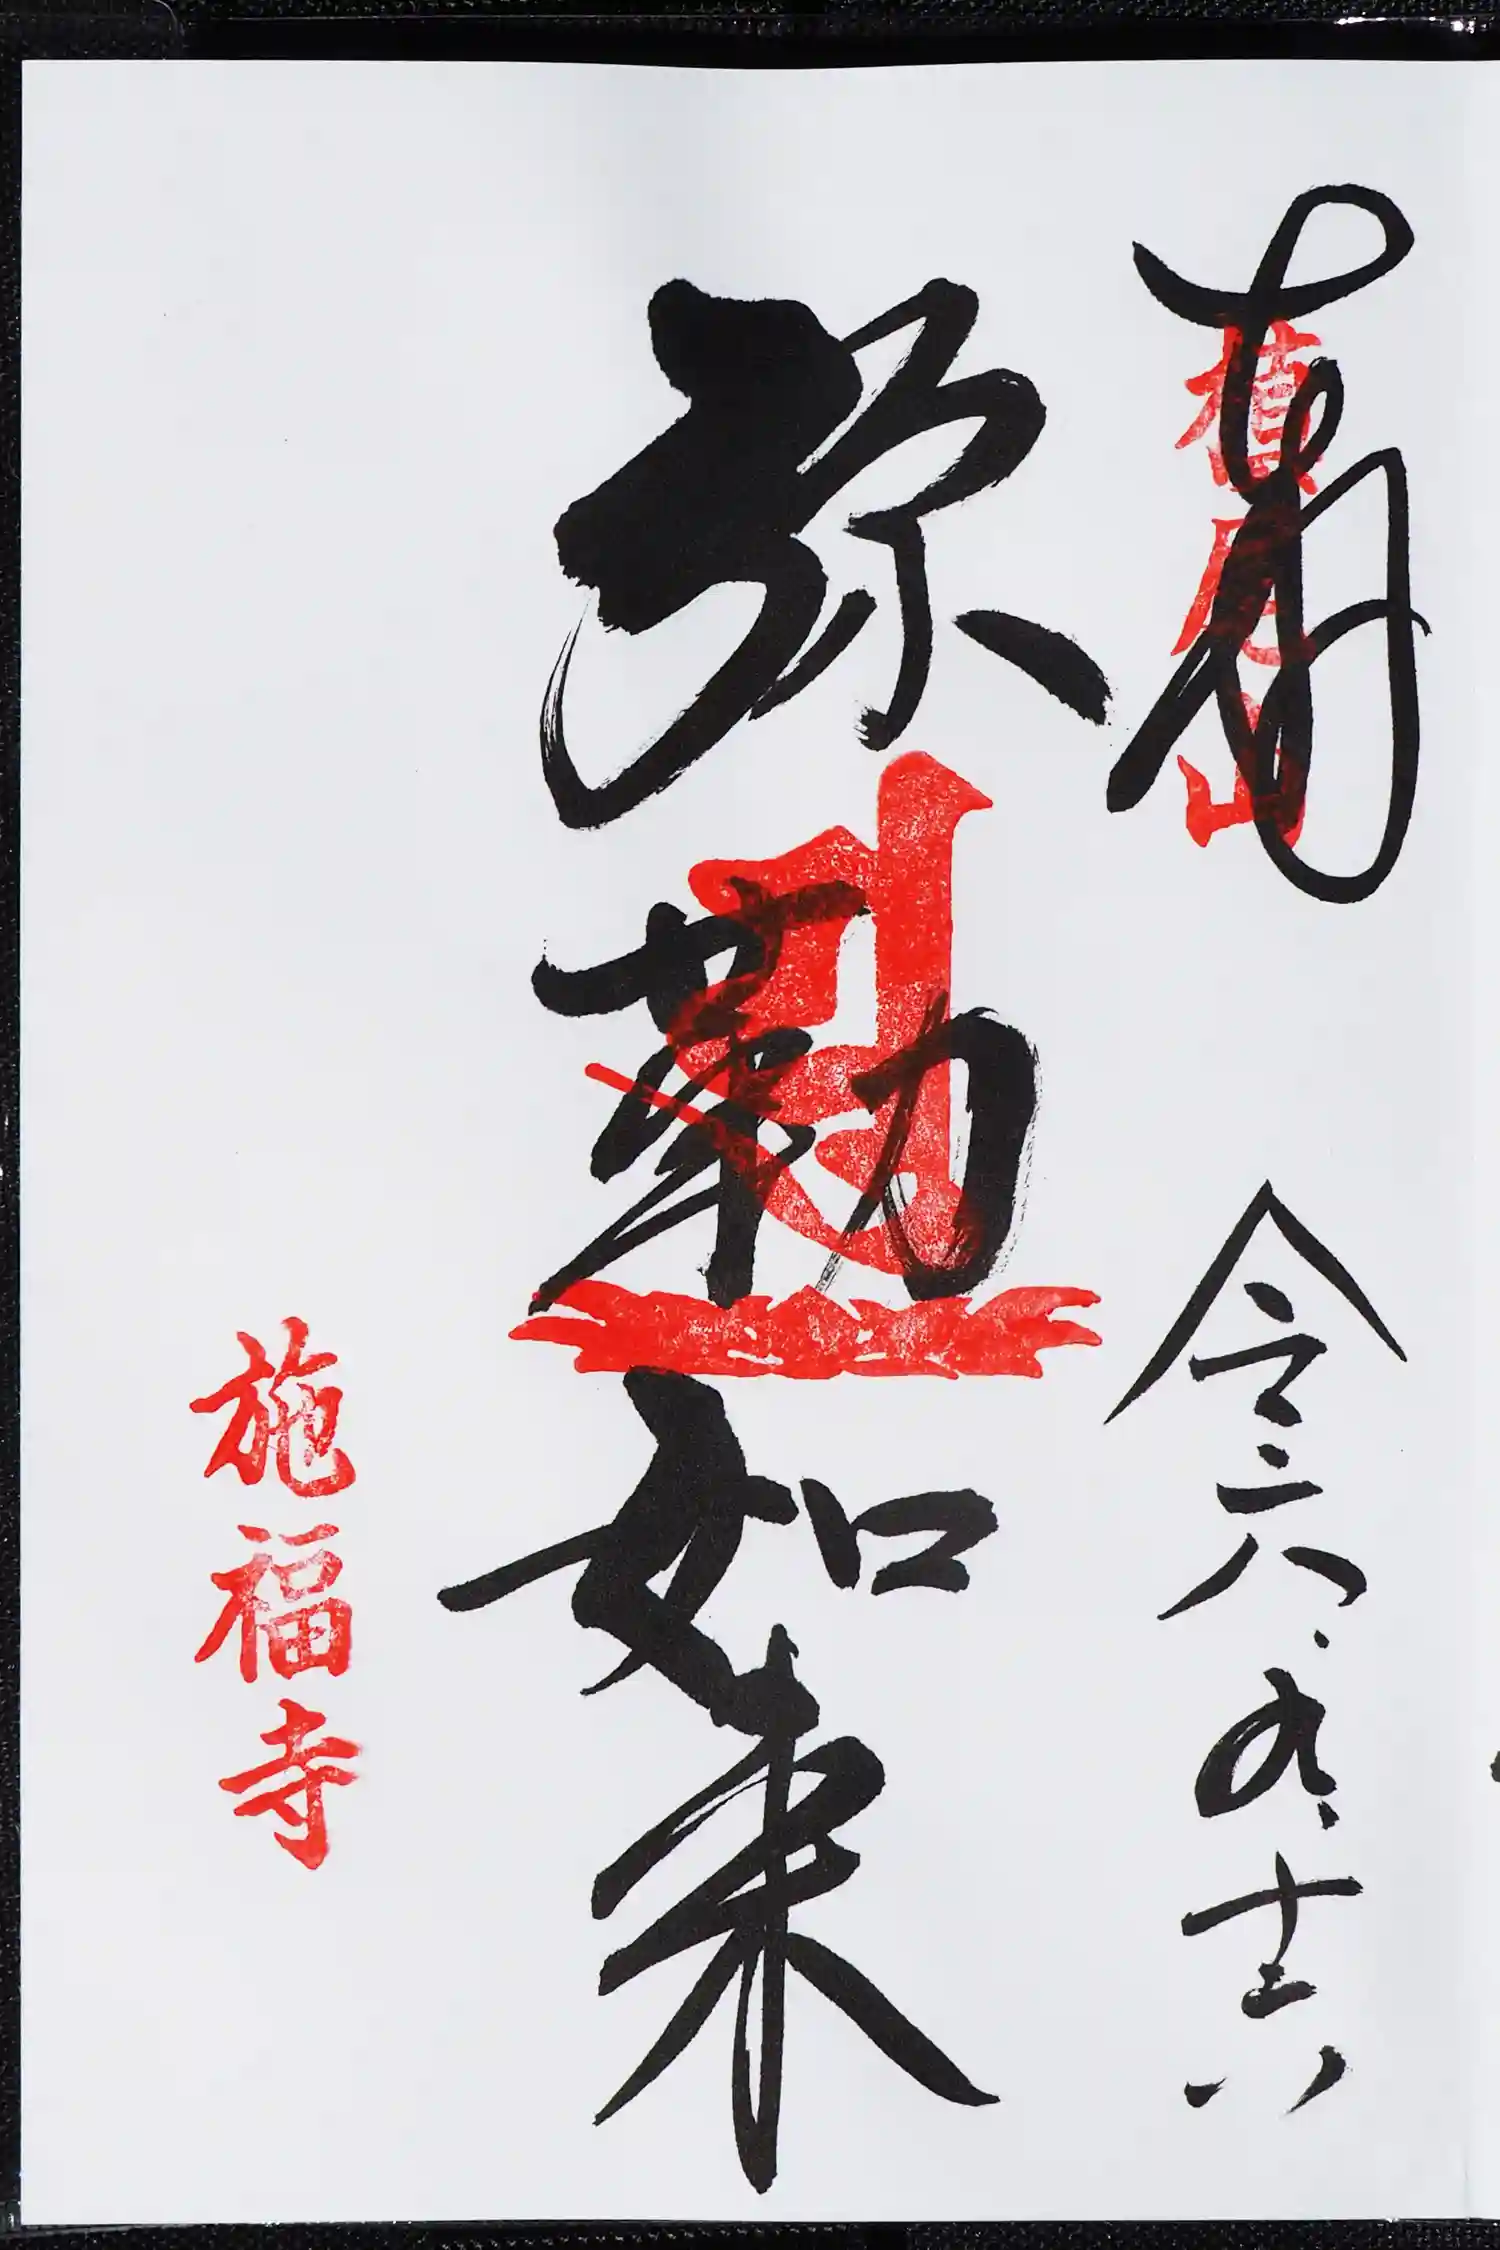 奉拝
槇尾山
令六、九、十六
弥勒如来
施福寺